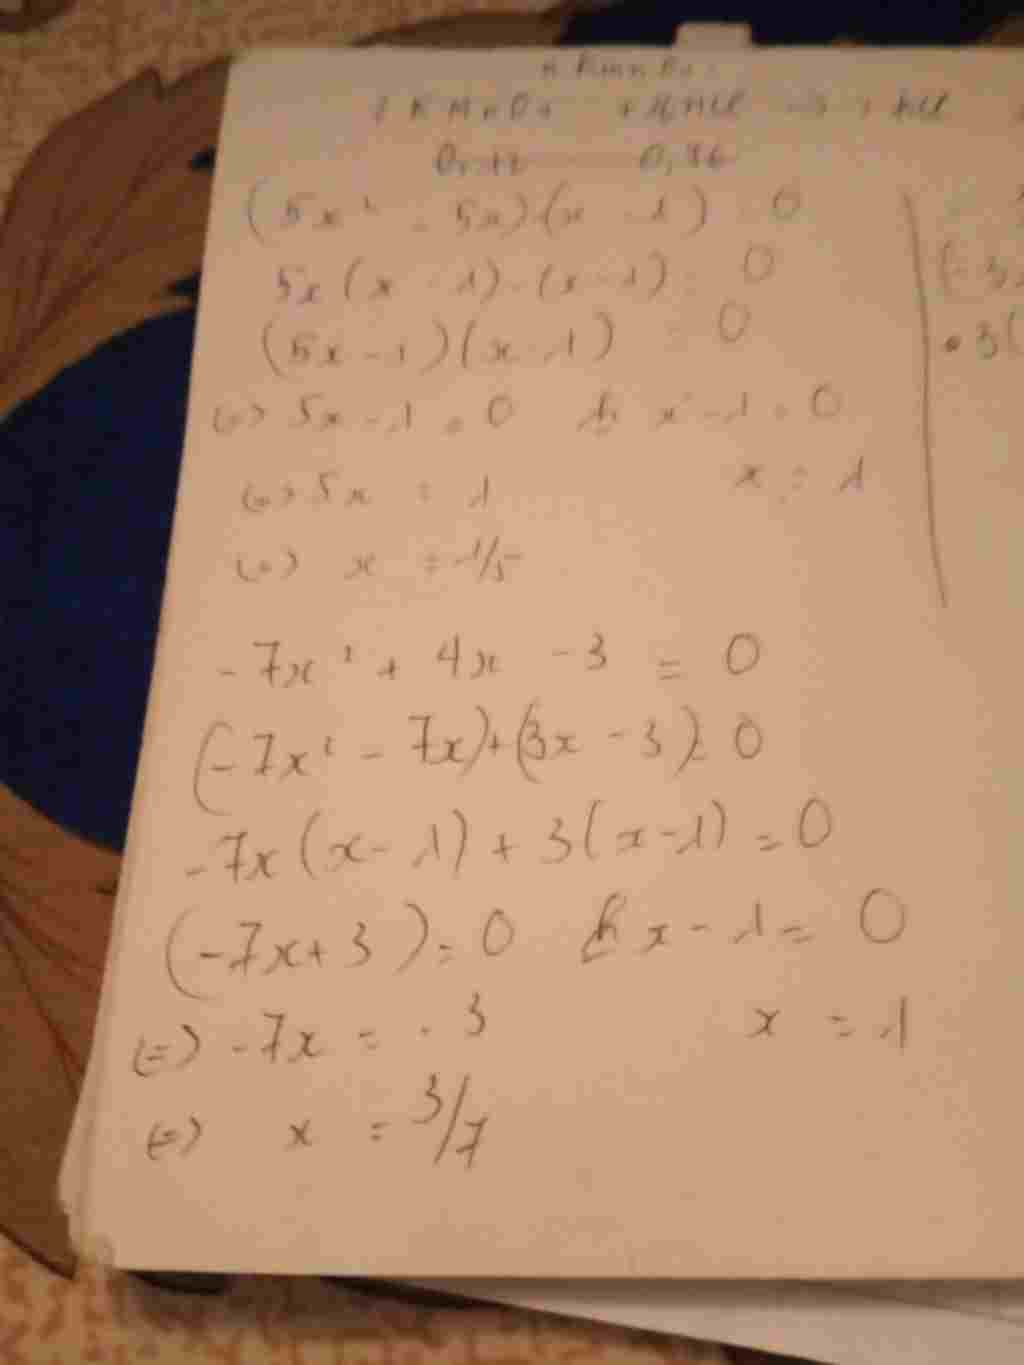 2 KMnO4 + 16 HCl → 2 KCl
0,86
(5x² - 5x) - (x - 1) = 0
5x (x - 1) - (x - 1) = 0
(5x - 1) (x - 1) = 0
(=) 5x - 1 = 0 h x - 1 = 0
(=) 5x = 1 x = 1
(=) x = 1/5
- 7x² + 4x - 3 = 0
(- 7x² - 7x) + (3x - 3) = 0
- 7x (x - 1) + 3 (x - 1) = 0
(- 7x + 3) = 0 h x - 1 = 0
(=) - 7x = - 3 x = 1
(=) x = 3/7